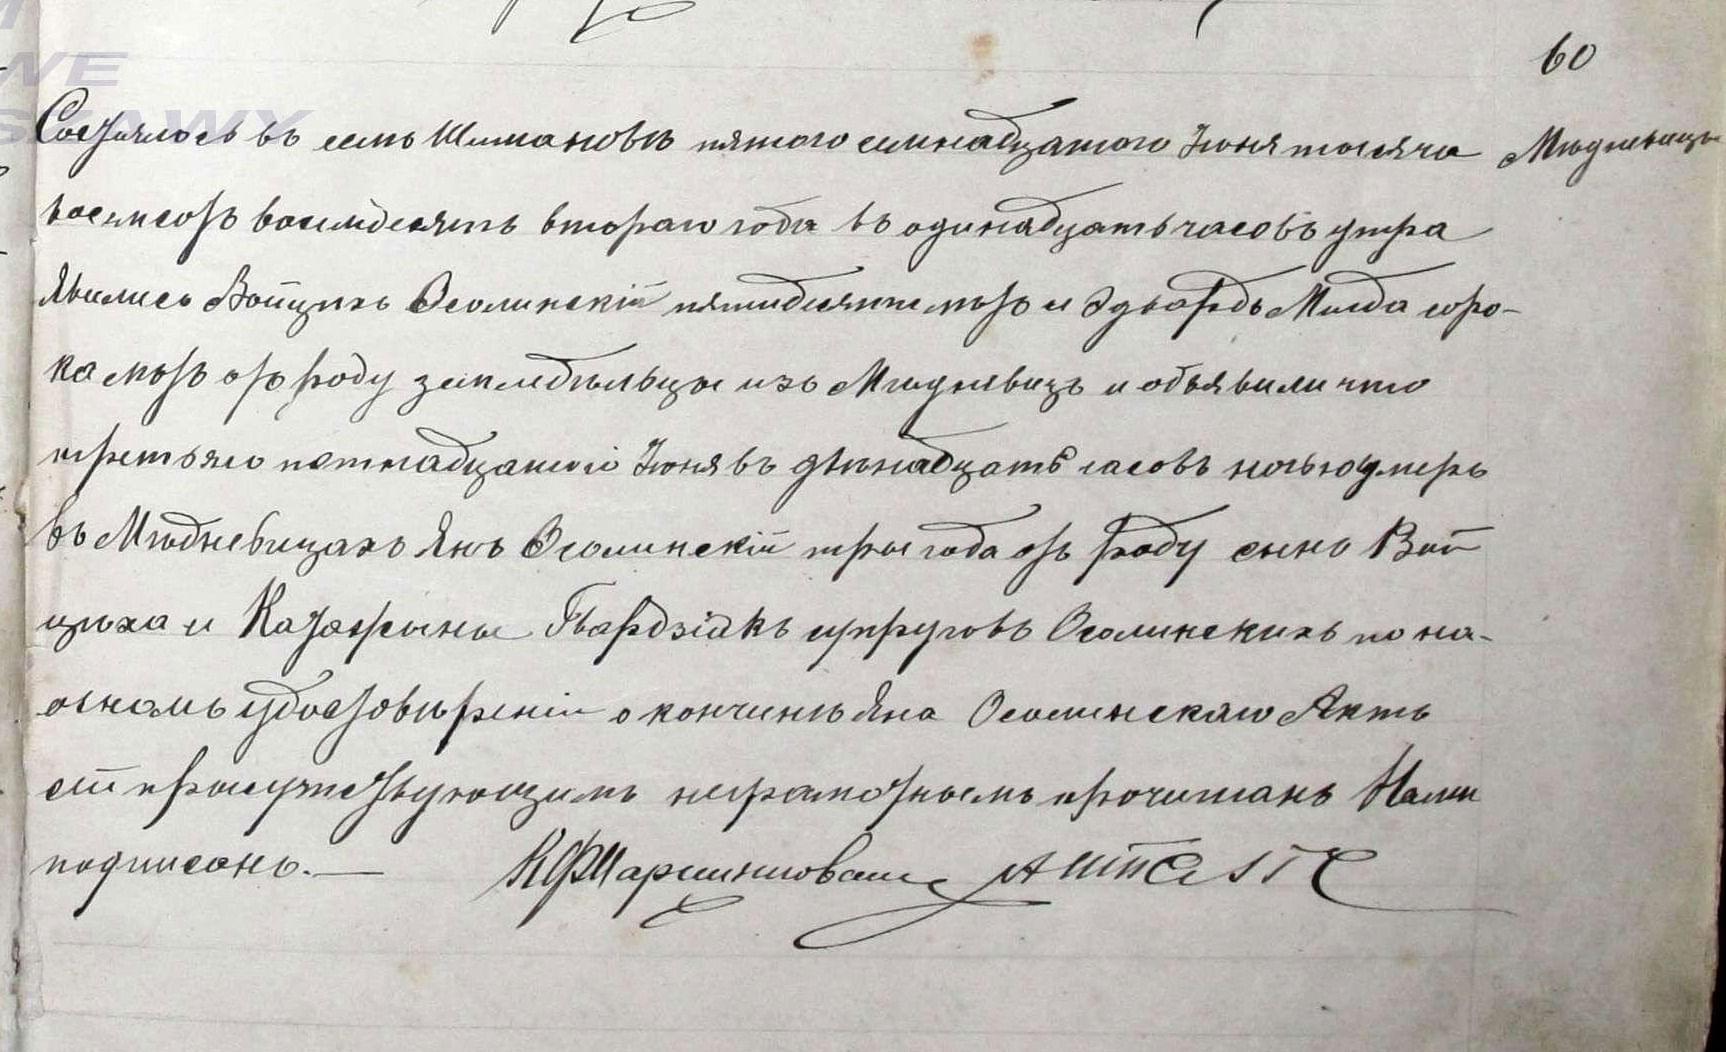 60
Состоялось въ селѣ Шимановѣ пятого семнадцатого Іюня тысяча
Мюдневицы
восемсотъ восемдесятъ второго года въ одинадцать часовъ утра
Явились Войцѣхъ Осолинскій пятидесяти лѣтъ и Эдвардъ Мигда соро-
ка лѣтъ отъ роду земледѣльцы изъ Мюдневицъ и объявили что
третьяго пятнадцатого Іюня въ двѣнадцать часовъ ночью умеръ
въ Мюдневицахъ Янъ Осолинскій три года отъ роду сынъ Вой
цѣха и Катарины Гвардзіакъ супруговъ Осолинскихъ по на-
очномъ удостовѣреніи о кончинѣ Яна Осолинскаго Актъ
сей присутствующимъ неграмотнымъ прочитанъ Нами
подписанъ. —